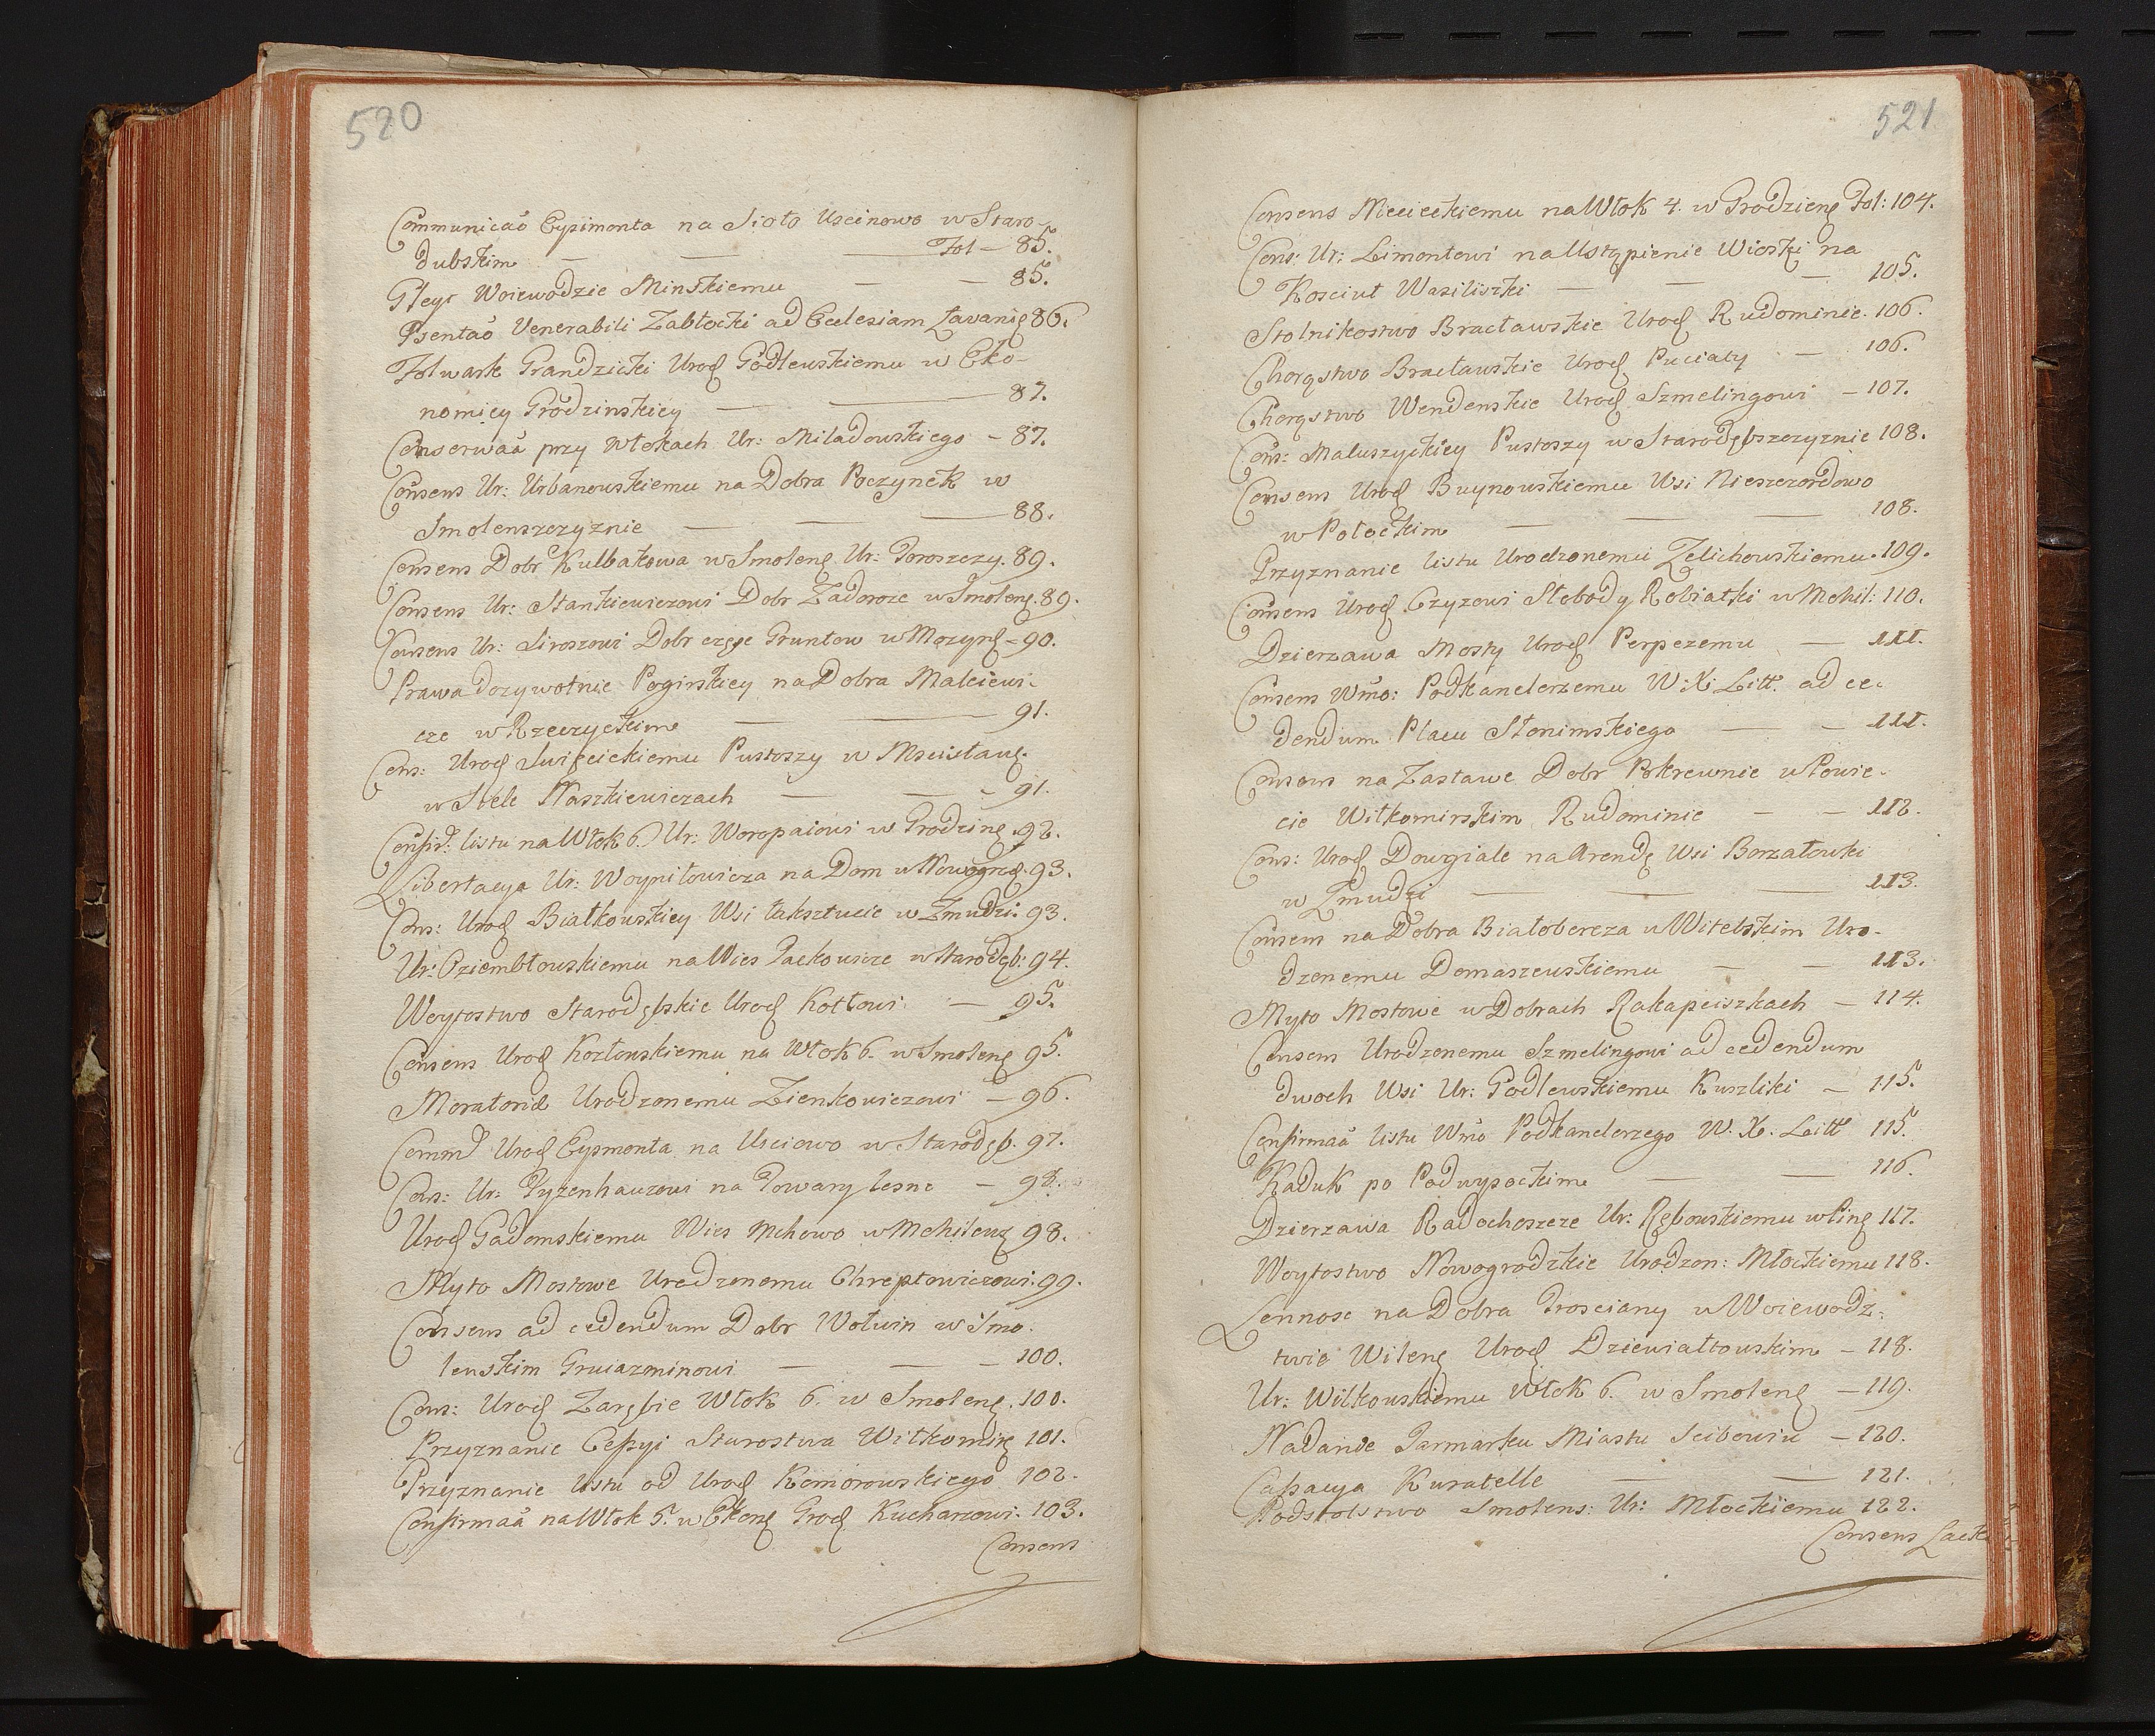 520
Communicaō Eysimonta na Sioło Uscinowo w Staro-
dubskim — — — Fol — 85.
Gleyt Woiewodzie Minskiemu — — 85.
Psentaō Venerabili Zabłocki ad Ecclesiam 86.
Folwark Grandzicki Urod Godlewskiemu w Eko-
nomiey Grodzinskiey — — 87.
Conserwaā przy Włokach Ur: Miladowskiego - 87.
Consens Ur: Urbanowskiemu na Dobra Poczynek w
Smolenszczyznie — — — 88.
Consens Dobr Kulbakowa w Smolens Ur: Poroszczy. 89.
Consens Ur: Stankiewiczowi Dobr Zadoroze w Smolens. 89.
Consens Ur: Siroszowi Dobr częsc Gruntow w Mozyrs - 90.
Prawa dozywotnie Pogirskiey na Dobra Malciewi-
cze w Rzeczyckim — — 91.
Cons: Urod Swięcickiemu Pustoszy w Mscisławs.
w Siele Naszkiewiczach — — - 91.
Confir: listu na Włok 6. Ur: Woropaiowi w Grodzins. 92.
Libertacya Ur: Woyniłowicza na Dom w Nowogrod. 93.
Cons: Urod Białkowskiey Wsi Łaksztucie w Zmudzi. 93.
Ur: Dziembłowskiemu na Wies Packowicze w Starodęb: 94.
Woytostwo Starodębskie Urod Kottowi — 95.
Consens Urod Kozłowskiemu na Włok 6. w Smolens 95.
Moratoria Urodzonemu Zienkowiczowi — 96.
Comm Urod Eysmonta na Usciowo w Starodęb. 97.
Cons: Ur: Tyzenhauzowi na Towary lesne — 98.
Urod Gadomskiemu Wies Mchowo w Mohilews 98.
Myto Mostowe Urodzonemu Chreptowiczowi. 99.
Consens ad cedendum Dobr Wołwin w Smo-
lenskim Gruiazminowi — — — 100.
Cons: Urod Zarębie Włok 6. w Smolens. 100.
Przyznanie Cessyi Starostwa Wiłkomirs 101.
Przyznanie listu od Urod Komorowskiego 102.
Confirmaā na Włok 5. w Ekons Grod Kucharzowi. 103.
Consens
521
Consens Mccickiemu na Włok 4. w Grodziens Fol: 104.
Cons: Ur: Limontowi na Ustąpienie Wioski na
Kosciuł Wasiliszki — — — 105.
Stolnikostwo Bracławskie Urod Rudominie. 106.
Chorąstwo Bracławskie Urod Puciaty — 106.
Chorąstwo Wendenskie Urod Szmelingowi — 107.
Cons: Maluszyckiey Pustoszy w Starodębszczyznie 108.
Consens Urod Buynowskiemu Wsi Nieszczordowo
w Połockim — — — 108.
Przyznanie listu Urodzonemu Zelichowskiemu. 109.
Consens Urod Czyzowi Słobody Robiatki w Mohil: 110.
Dzierzawa Mosty Urod Perpezemu — 111.
Consens Wmo: Podkanclerzemu W: X: Litt. ad ce-
dendum Placu Słonimskiego — — 111.
Consens na Zastawe Dobr Pokrewnie w Powie-
cie Wiłkomirskim Rudominie — — 112.
Cons: Urod Dowgiale na Arendę Wsi Borzatowki
w Zmudzi — — — 113.
Consens na Dobra Białobereza w Witebskim Uro-
dzonemu Domaszewskiemu — — 113.
Myto Mostowe w Dobrach Rakapciszkach — 114.
Consens Urodzonemu Szmelingowi ad cedendum
dwoch Wsi Ur: Godlewskiemu Kuszliki — 115.
Confirmaā listu Wmo Podkanclerzego W. X. Litt 115.
Kaduk po Podwysockim — — 116.
Dzierzawa Radohoszcze Ur: Rębowskiemu w Pins 117.
Woytostwo Nowogrodzkie Urodzon: Młockiemu 118.
Lennosc na Dobra Prosciany w Woiewodz-
twie Wilens Urod Dziewiałtowskim — 118.
Ur: Wilkowskiemu Włok 6. w Smolens — 119.
Nadanie Jarmarku Miastu Scibowiu — 120.
Cassacya Kuratelle — — 121.
Podstolstwo Smolens: Ur: Młockiemu 122.
Consens